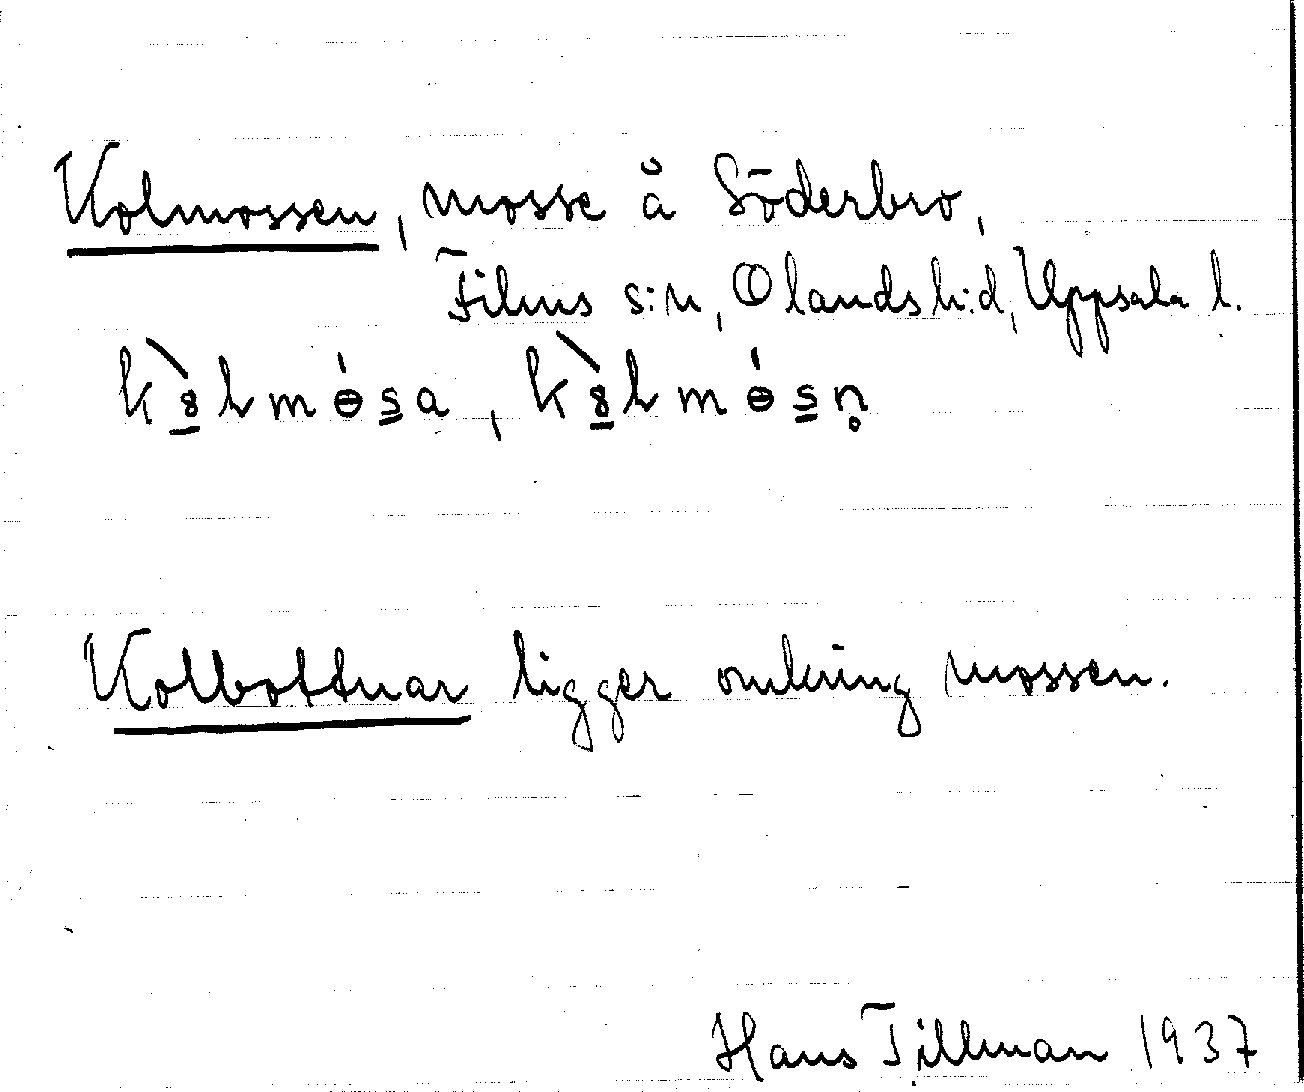 Kolmossen, mosse å Söderbro,
Films s:n, Olands h:d, Uppsala l.
Kolbottnar ligger omkring mossen.
Hans Tillman 1937